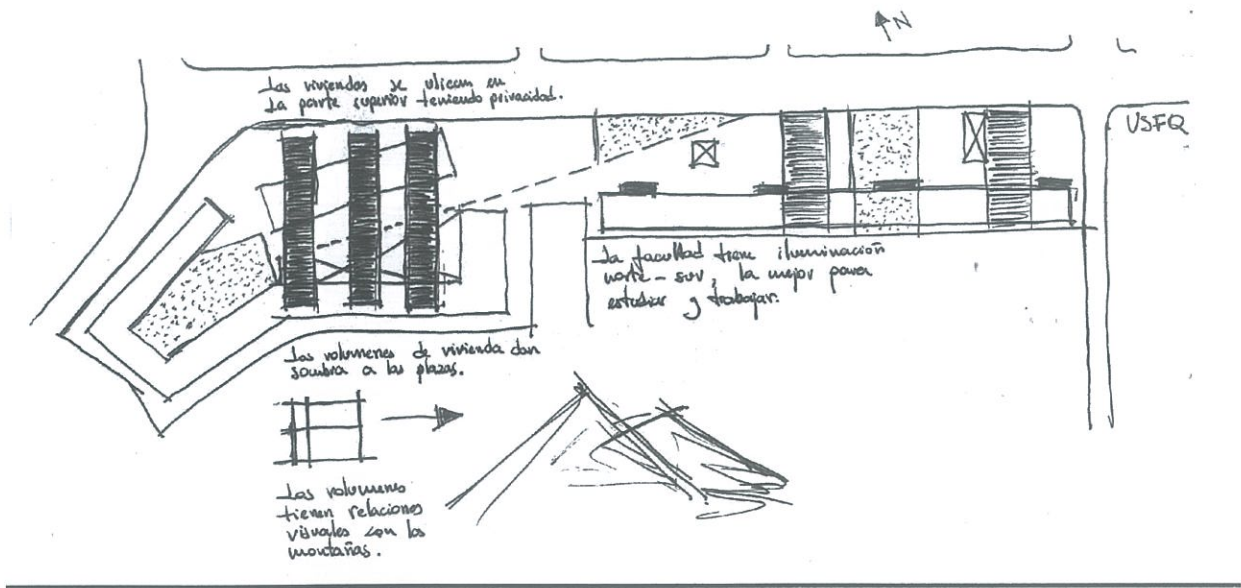 N
Las viviendas se ubican en
la parte superior teniendo privacidad.
USFQ
La facultad tiene iluminación
norte - sur, la mejor para
estudiar y trabajar.
Los volumenes de vivienda dan
sombra a las plazas.
Los volumenes
tienen relaciones
visuales con las
montañas.